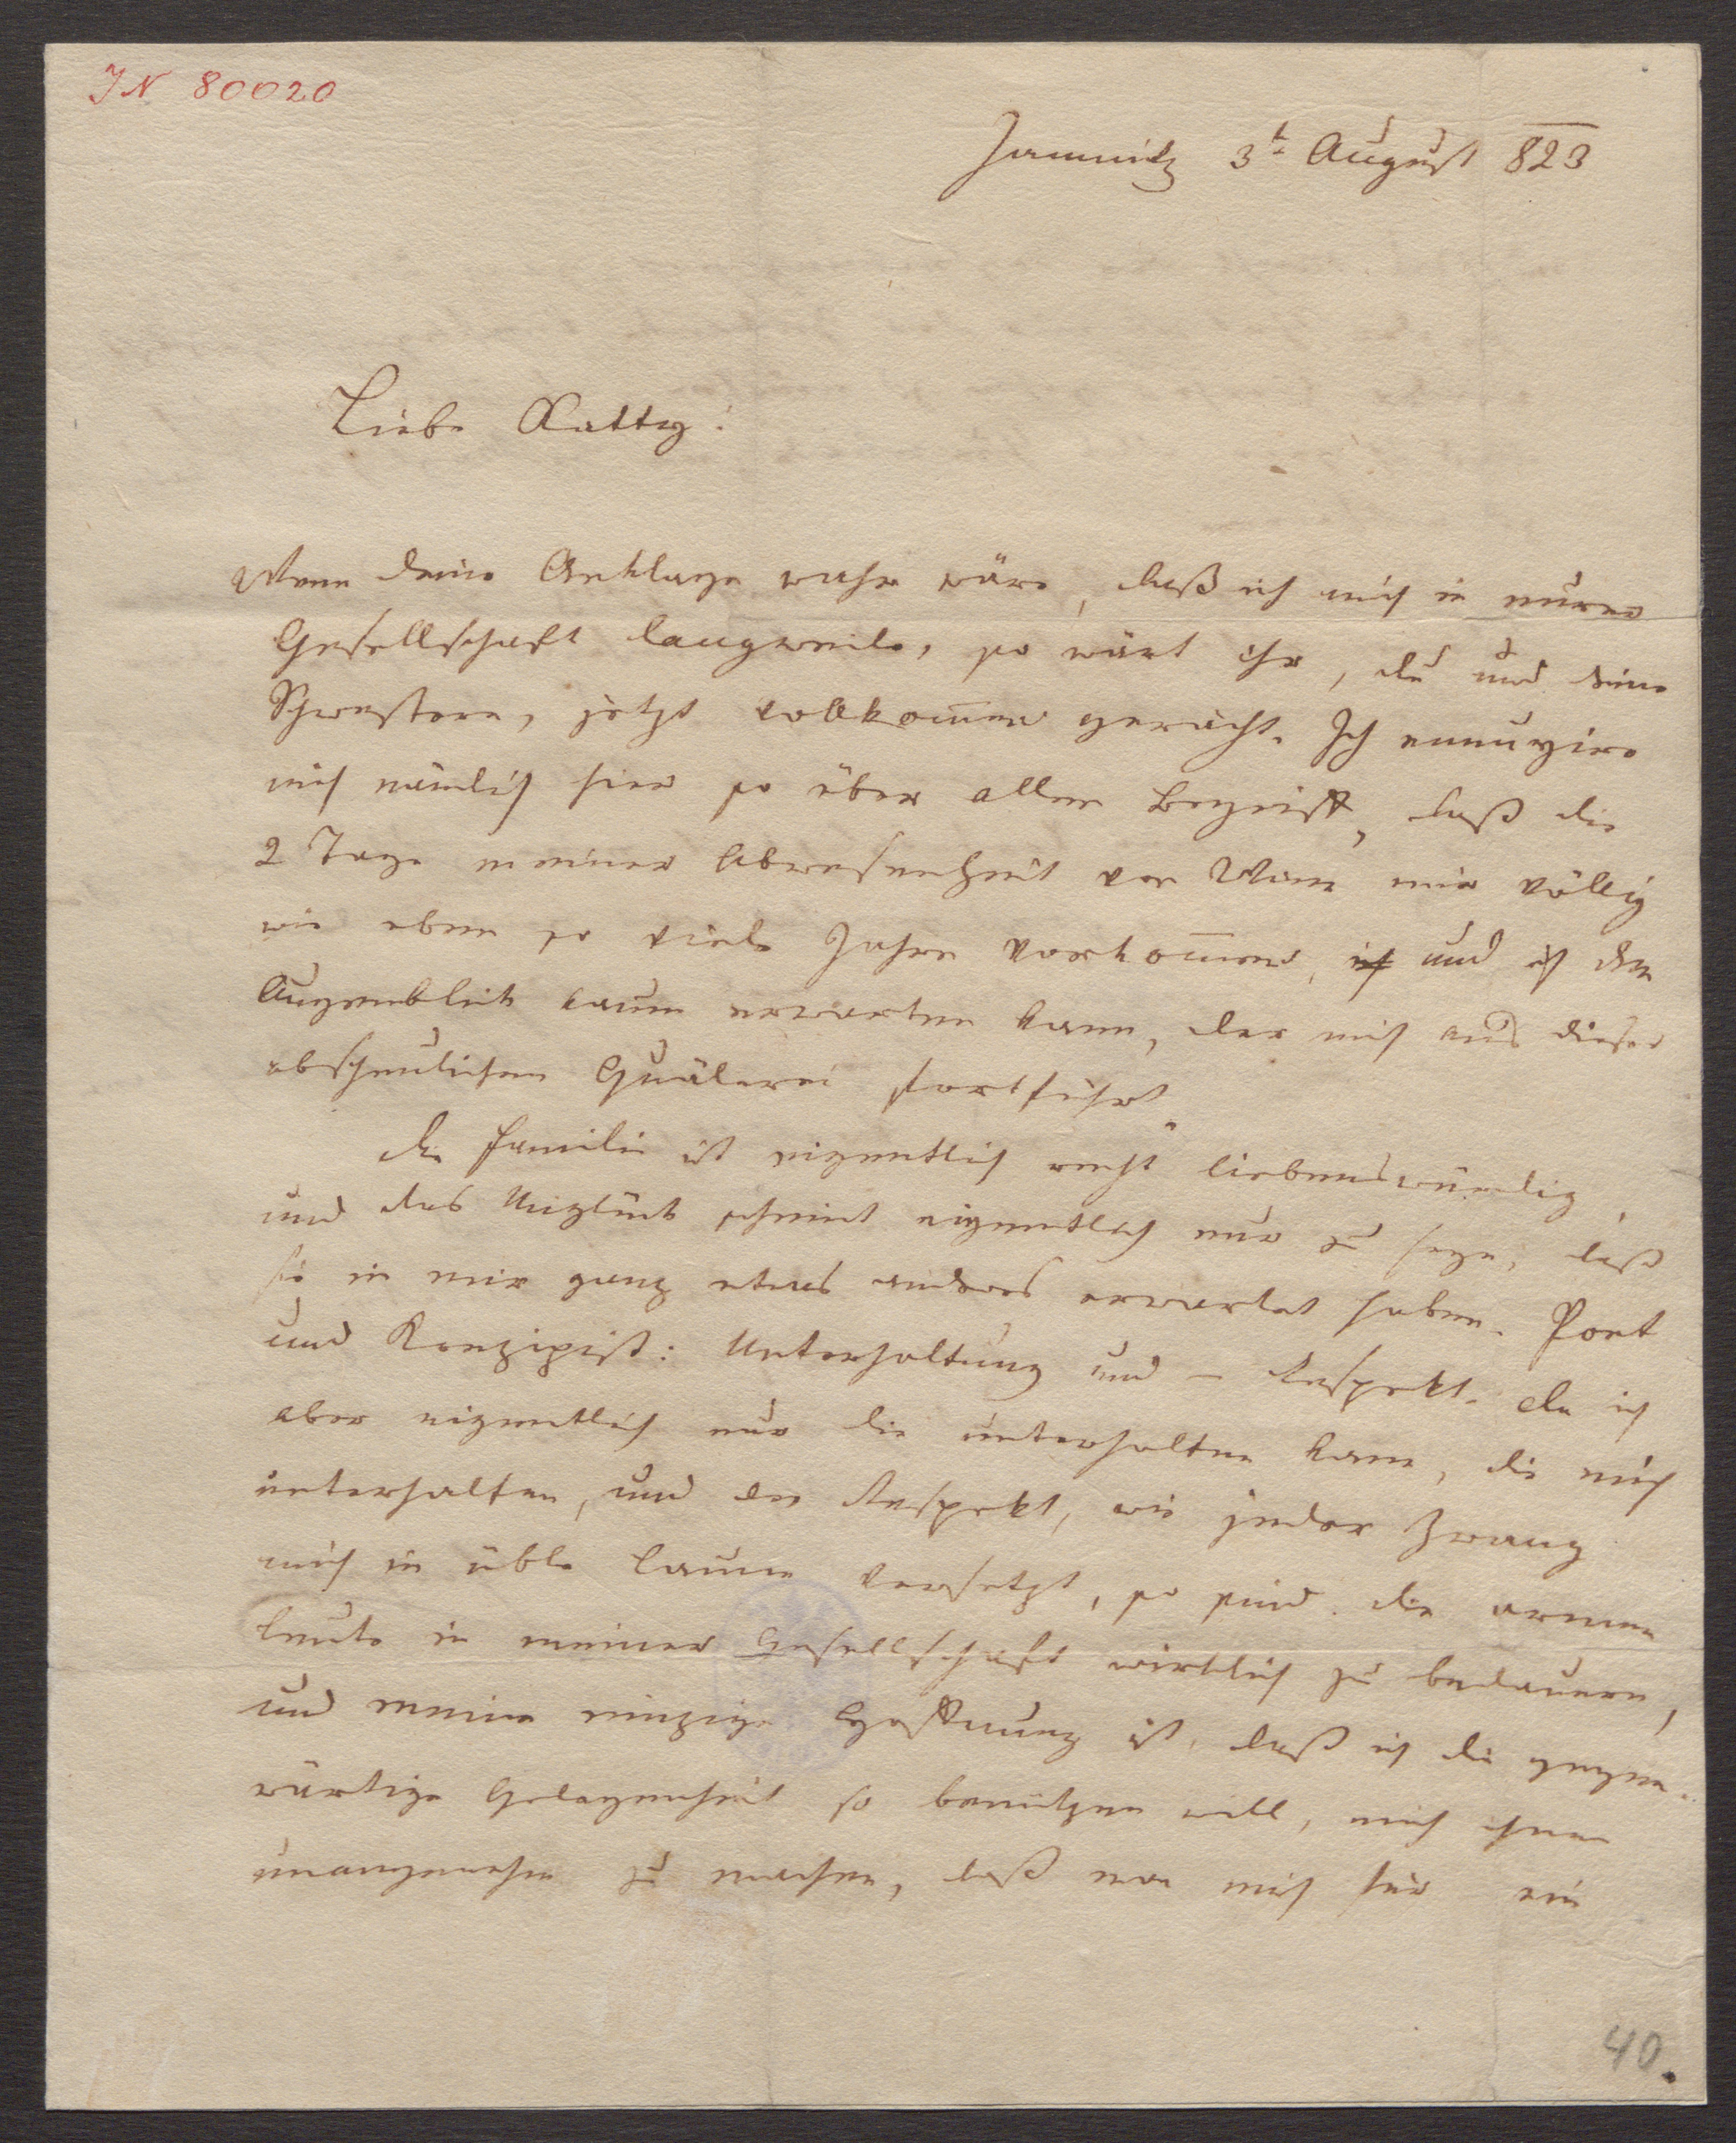 IN 80020
Jamnitz 3t August 823
Liebe Katty!
Wenn deine Anklage wahr wäre, daß ich mich in eurer
Gesellschaft langweile, so wärt ihr, du und deine
Schwestern, jetzt vollkom̅en gerächt. Ich ennuyire
mich nämlich hier so über allen Begriff, daß die
2 Tage meiner Abwesenheit von Wien mir völlig
wie eben so viele Jahre vorkom̅en, ich und ich den
Augenblick kaum erwarten kann, der mich aus dieser
abscheulichen Quälerei fortführt.
Die Familie ist eigentlich recht liebenswürdig,
und das Unglück scheint eigentlich nur zu seyn, daß
sie in mir ganz etwas anders erwartet haben. Poet
und Konzipist: Unterhaltung und – Respekt. Da ich
aber eigentlich nur die unterhalten kann, die mich
unterhalten, und der Respekt, wie jeder Zwang
mich in üble Laune versetzt, so sind die armen
Leute in meiner Gesellschaft wirklich zu bedauern,
und meine einzige Hoffnung ist, daß ich die gegen-
wärtige Gelegenheit so benützen will, mich ihnen
unangenehm zu machen, daß man mich für ein
40.